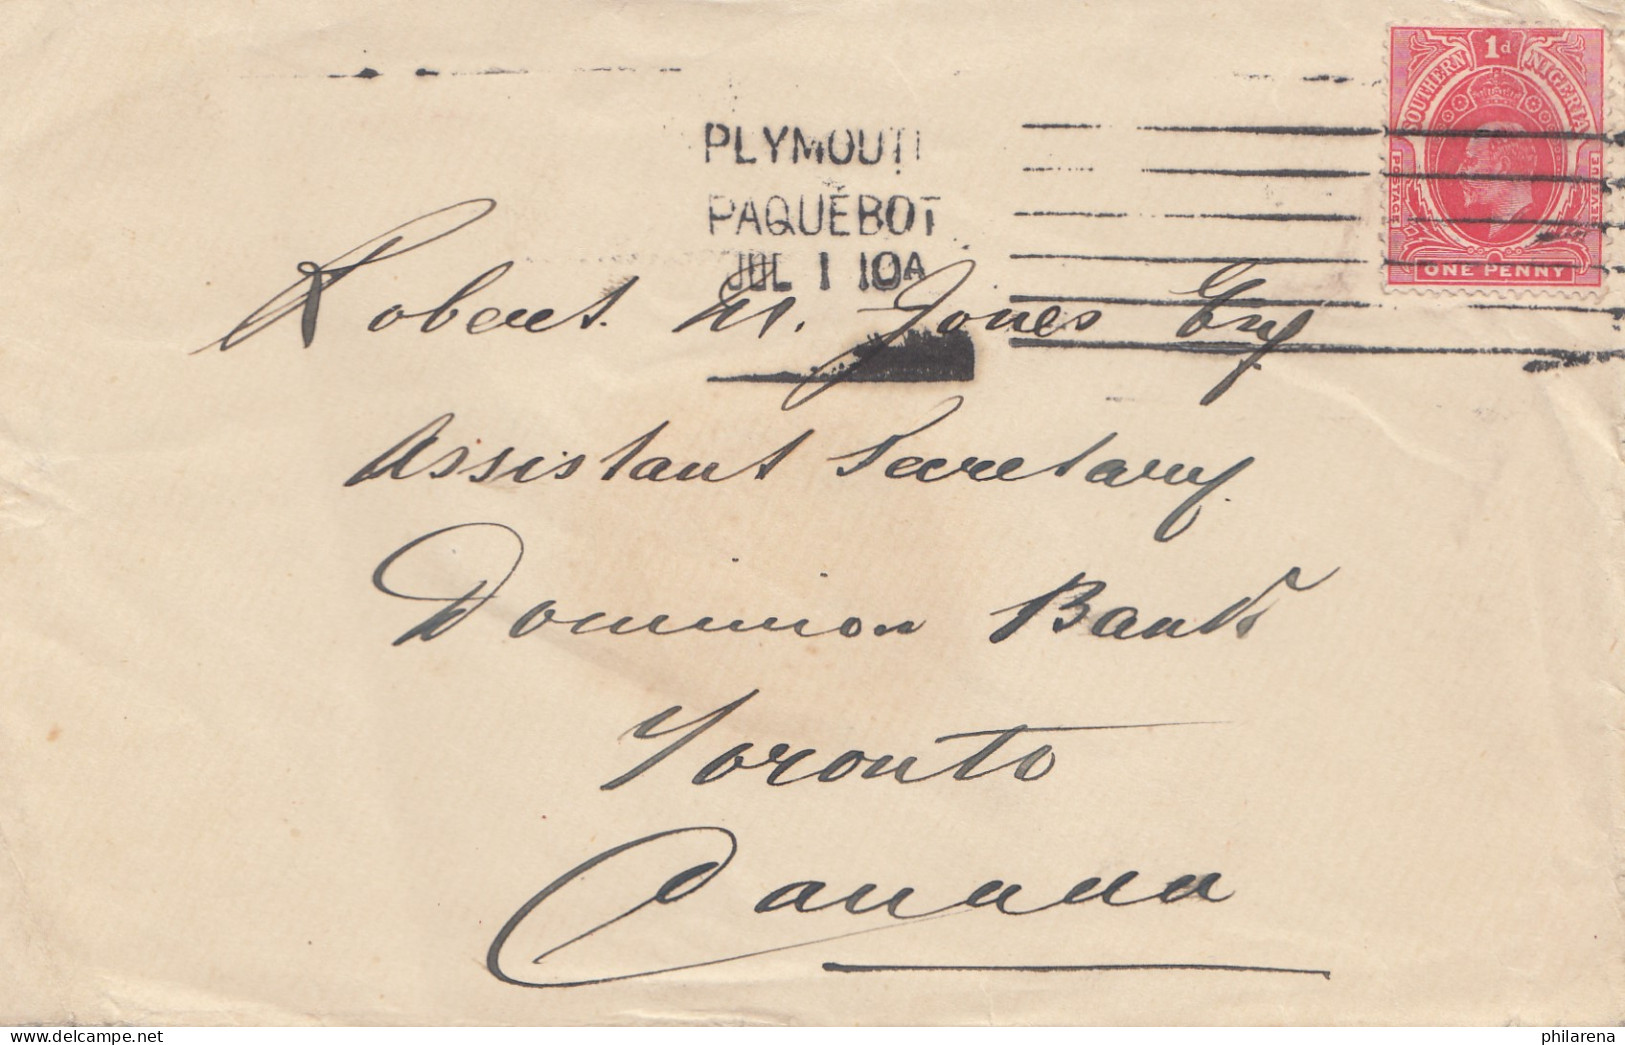 1d
SOUTHERN NIGERIA
POSTAGE
REVENUE
ONE PENNY
PLYMOUTH
PAQUEBOT
JUL 1 10A
Robert M. Jones Esq
Assistant Secretary
Dominion Bank
Toronto
Canada
philarena